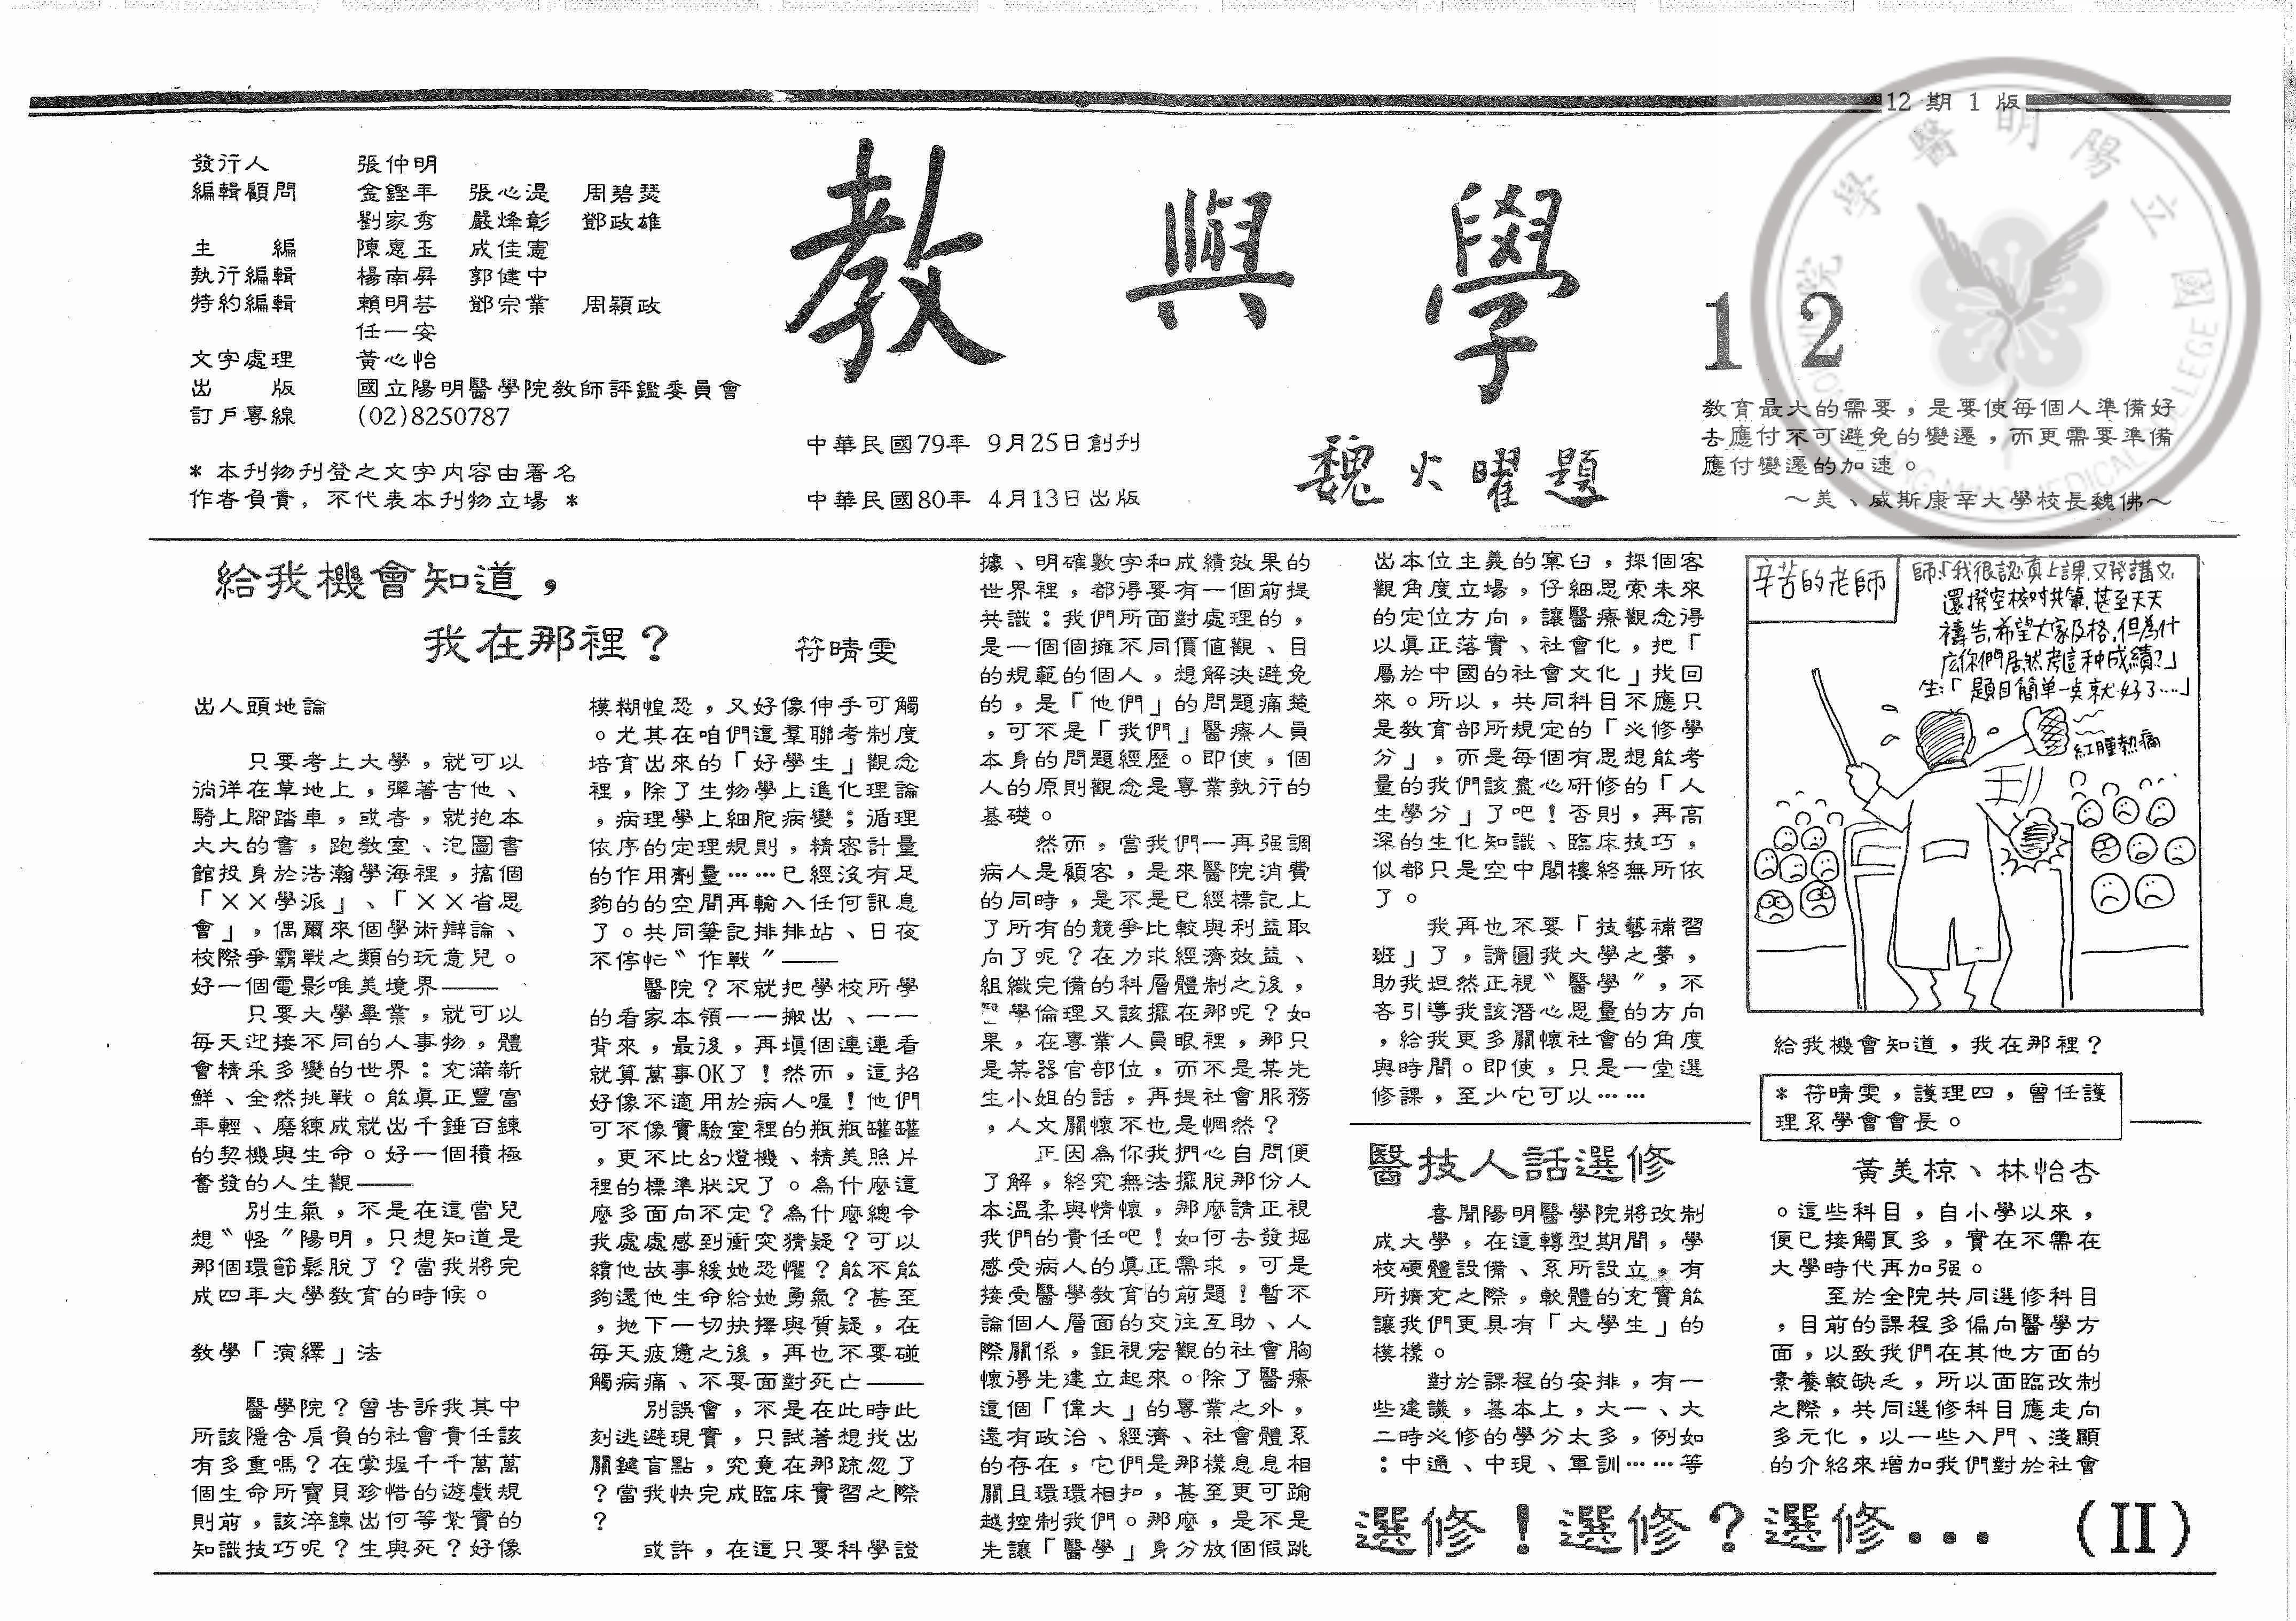 12 期 1 版
發行人 張仲明
編輯顧問 金鏗年 張心湜 周碧瑟
劉家秀 嚴烽彰 鄧政雄
主 編 陳惠玉 成佳憲
執行編輯 楊南屏 郭健中
特約編輯 賴明芸 鄧宗業 周穎政
任一安
文字處理 黃心怡
出 版 國立陽明醫學院教師評鑑委員會
訂戶專線 (02)8250787
* 本刊物刊登之文字內容由署名
作者負責，不代表本刊物立場 *
教與學
12
中華民國79年 9月25日創刊
中華民國80年 4月13日出版
魏火曜題
教育最大的需要，是要使每個人準備好
去應付不可避免的變遷，而更需要準備
應付變遷的加速。
～美、威斯康辛大學校長魏佛～
國立陽明醫學院
給我機會知道，
我在那裡？ 符晴雯
出人頭地論
只要考上大學，就可以
淌洋在草地上，彈著吉他、
騎上腳踏車，或者，就抱本
大大的書，跑教室、泡圖書
館投身於浩瀚學海裡，搞個
「××學派」、「××省思
會」，偶爾來個學術辯論、
校際爭霸戰之類的玩意兒。
好一個電影唯美境界——
只要大學畢業，就可以
每天迎接不同的人事物，體
會精采多變的世界：充滿新
鮮、全然挑戰。能真正豐富
年輕、磨練成就出千錘百鍊
的契機與生命。好一個積極
奮發的人生觀——
別生氣，不是在這當兒
想〝怪〞陽明，只想知道是
那個環節鬆脫了？當我將完
成四年大學教育的時候。
教學「演繹」法
醫學院？曾告訴我其中
所該隱含肩負的社會責任該
有多重嗎？在掌握千千萬萬
個生命所寶貝珍惜的遊戲規
則前，該淬鍊出何等紮實的
知識技巧呢？生與死？好像
模糊惶恐，又好像伸手可觸
。尤其在咱們這羣聯考制度
培育出來的「好學生」觀念
裡，除了生物學上進化理論
，病理學上細胞病變；循理
依序的定理規則，精密計量
的作用劑量……已經沒有足
夠的的空間再輸入任何訊息
了。共同筆記排排站、日夜
不停忙〝作戰〞——
醫院？不就把學校所學
的看家本領一一搬出、一一
背來，最後，再填個連連看
就算萬事OK了！然而，這招
好像不適用於病人喔！他們
可不像實驗室裡的瓶瓶罐罐
，更不比幻燈機、精美照片
裡的標準狀況了。為什麼這
麼多面向不定？為什麼總令
我處處感到衝突猜疑？可以
續他故事緩她恐懼？能不能
夠還他生命給她勇氣？甚至
，拋下一切抉擇與質疑，在
每天疲憊之後，再也不要碰
觸病痛、不要面對死亡——
別誤會，不是在此時此
刻逃避現實，只試著想找出
關鍵盲點，究竟在那疏忽了
？當我快完成臨床實習之際
？
或許，在這只要科學證
據、明確數字和成績效果的
世界裡，都得要有一個前提
共識：我們所面對處理的，
是一個個擁不同價值觀、目
的規範的個人，想解決避免
的，是「他們」的問題痛楚
，可不是「我們」醫療人員
本身的問題經歷。即使，個
人的原則觀念是專業執行的
基礎。
然而，當我們一再强調
病人是顧客，是來醫院消費
的同時，是不是已經標記上
了所有的競爭比較與利益取
向了呢？在力求經濟效益、
組織完備的科層體制之後，
醫學倫理又該擺在那呢？如
果，在專業人員眼裡，那只
是某器官部位，而不是某先
生小姐的話，再提社會服務
，人文關懷不也是惘然？
正因為你我捫心自問便
了解，終究無法擺脫那份人
本溫柔與情懷，那麼請正視
我們的責任吧！如何去發掘
感受病人的真正需求，可是
接受醫學教育的前題！暫不
論個人層面的交往互助、人
際關係，鉅視宏觀的社會胸
懷得先建立起來。除了醫療
這個「偉大」的專業之外，
還有政治、經濟、社會體系
的存在，它們是那樣息息相
關且環環相扣，甚至更可踰
越控制我們。那麼，是不是
先讓「醫學」身分放個假跳
出本位主義的窠臼，採個客
觀角度立場，仔細思索未來
的定位方向，讓醫療觀念得
以真正落實、社會化，把「
屬於中國的社會文化」找回
來。所以，共同科目不應只
是教育部所規定的「必修學
分」，而是每個有思想能考
量的我們該盡心研修的「人
生學分」了吧！否則，再高
深的生化知識、臨床技巧，
似都只是空中閣樓終無所依
了。
我再也不要「技藝補習
班」了，請圓我大學之夢，
助我坦然正視〝醫學〞，不
吝引導我該潛心思量的方向
，給我更多關懷社會的角度
與時間。即使，只是一堂選
修課，至少它可以……
辛苦的老師
師:「我很認真上課,又發講文,
還撥空校對共筆,甚至天天
禱告,希望大家及格,但為什
庅你們居然考這种成績?」
生:「題目簡單一点就好了…」
紅腫熱痛
給我機會知道，我在那裡？
* 符晴雯，護理四，曾任護
理系學會會長。
醫技人話選修
黃美椋、林怡杏
喜聞陽明醫學院將改制
成大學，在這轉型期間，學
校硬體設備、系所設立，有
所擴充之際，軟體的充實能
讓我們更具有「大學生」的
模樣。
對於課程的安排，有一
些建議，基本上，大一、大
二時必修的學分太多，例如
：中通、中現、軍訓……等
。這些科目，自小學以來，
便已接觸良多，實在不需在
大學時代再加强。
至於全院共同選修科目
，目前的課程多偏向醫學方
面，以致我們在其他方面的
素養較缺乏，所以面臨改制
之際，共同選修科目應走向
多元化，以一些入門、淺顯
的介紹來增加我們對於社會
選修！選修？選修... (II)